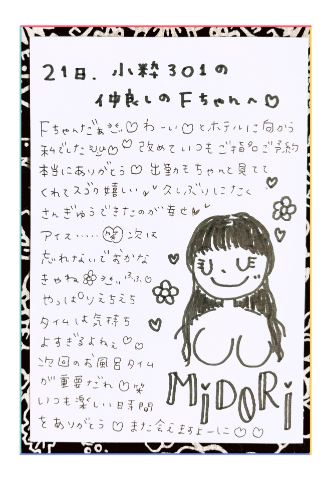 21日、小粋301の
仲良しのFちゃんへ♡
Fちゃんだぁ♡わーい♡とホテルに向から
私でした♡改めていつもご指名ご予約
本当にありがとう♡出勤もちゃんと見てて
くれてスゴク嬉しい 久しぶりにたく
さんぎゅうできたのが幸せ
アイス……次は
忘れないでおかな
きゃね
やっぱりえちえち
タイムは気持ち
よすぎるよねぇ♡♡
次回のお風呂タイム
が重要だね♡笑
いつも楽しい時間
をありがとう♡また会えますよーに♡♡♡
MiDORi